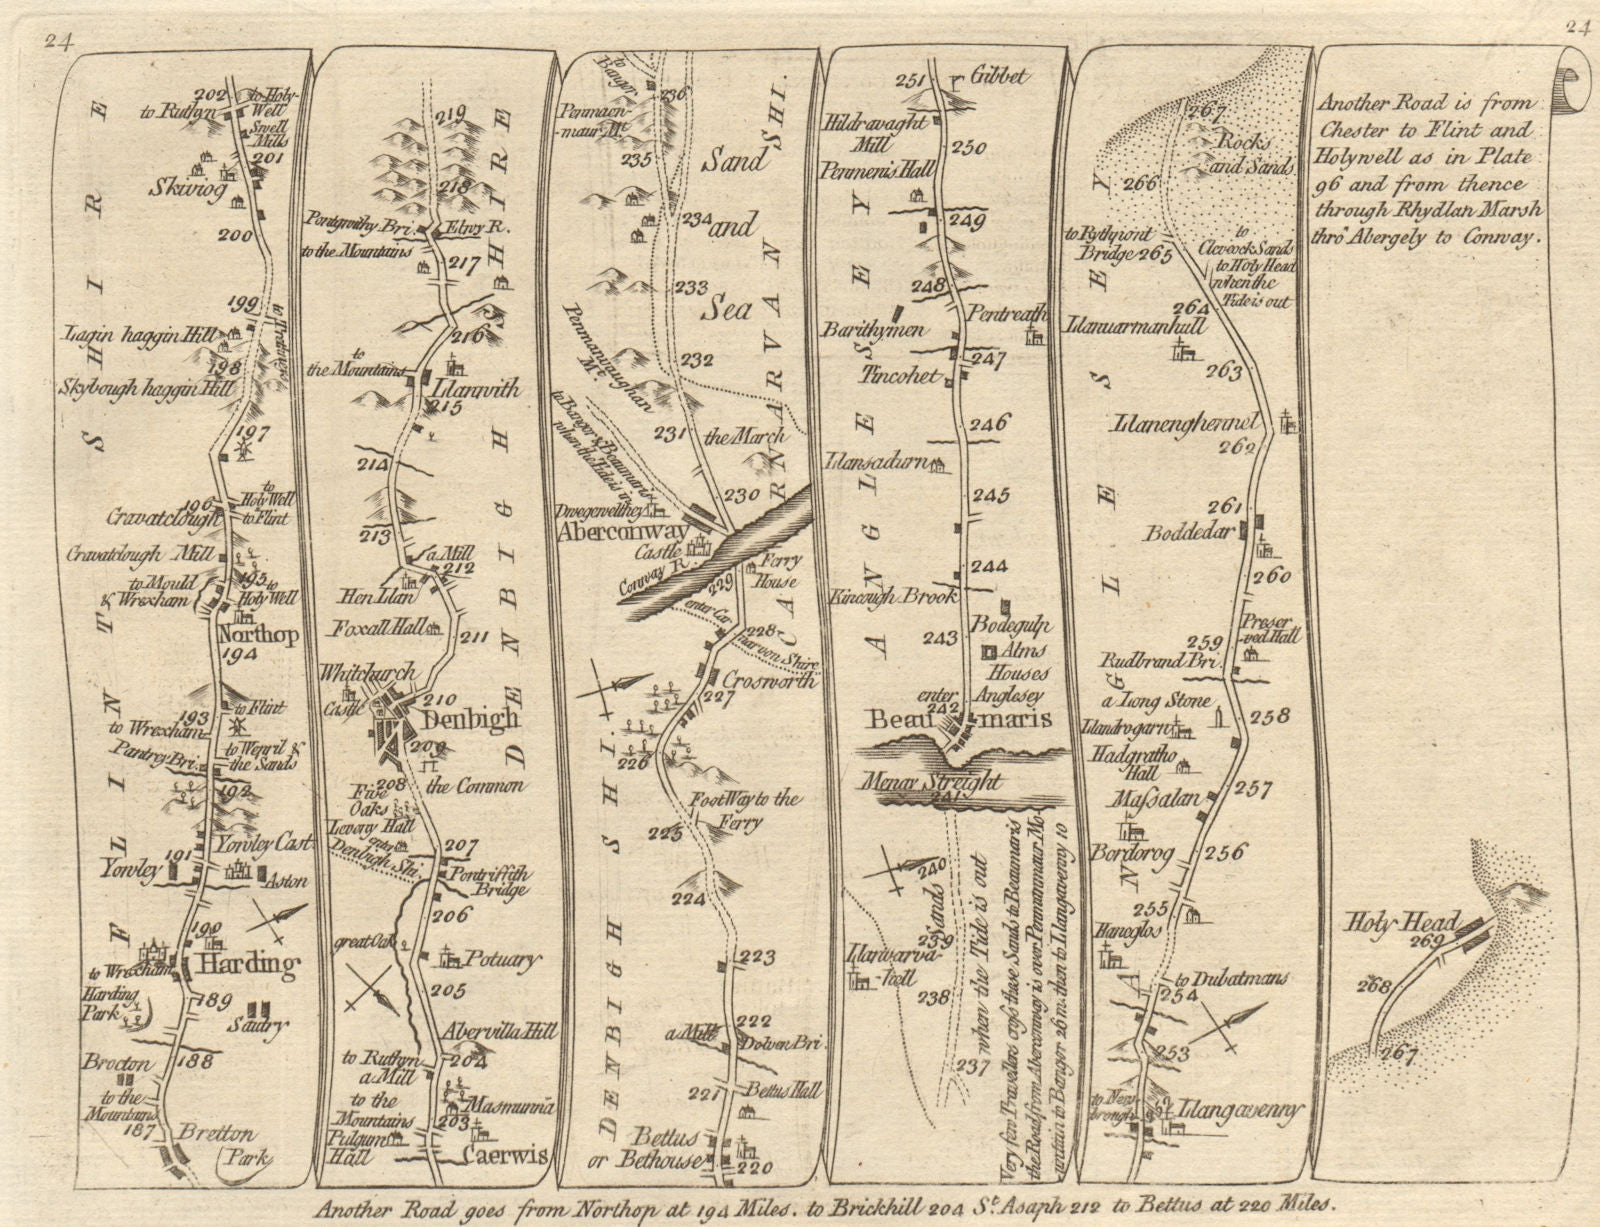 24
24
FLINTSHIRE
202
to Ruthyn
to Holy-
Well
Swell
Mills
201
Skiviog
200
199
Lagin haggin Hill
198
Skybough haggin Hill
197
196
to
Holy Well
to Flint
Cravatclough
Cravatclough Mill
to Mould
& Wrexham
195
to
Holy Well
Northop
194
to Flint
193
to Wrexham
to Wenril &
the Sands
Pantrey Bri.
192
Yowley Cast.
191
Yowley
Aston
190
to Wrexham
Harding
Harding
Park
189
Saltry
188
Brocton
to the
Mountains
187
Bretton
Park
DENBIGHSHIRE
219
218
Pontgwithy Bri.
Elwy R.
to the Mountains
217
216
to
the Mountains
Llannvith
215
214
213
a Mill
212
Hen Llan
Foxall Hall
211
Whitchurch
Castle
210
Denbigh
209
208
the Common
Five
Oaks
Leweny Hall
enter
Denbigh Shi.
207
Pontriffith
Bridge
206
great Oak
Potuary
205
Abervilla Hill
to Ruthyn
204
a Mill
to the
Mountains
Masmunna
203
Pulgum
Hall
Caerwis
DENBIGH SHI.
CARNARVAN SHI.
to
Bangor
236
Penmaen-
-maur Mt.
235
Sand
234
and
233
Sea
Penmanvaughan
Mt.
232
to Bangor & Beaumaris
when the Tide is in
231
the March
230
Dwegenvelthey
Aberconway
Castle
Conway R.
229
Ferry
House
enter Car
narvon Shire
228
Crosworth
227
226
Foot Way to the
Ferry
225
224
223
222
a Mill
Dolwen Bri.
221
Bettus Hall
Bettus
or Bethouse
220
ANGLESEY
251
Gibbet
Hildravaght
Mill
250
Penmenis Hall
249
248
Barithymen
Pentreath
247
Tincohet
246
Llansadurn
245
244
Kincough Brook
Bodegulp
243
Alms
Houses
enter
Anglesey
242
Beau
maris
Menay Streight
241
240
Sands
239
when the Tide is out
Llanvarva-
-Icell
238
237
Very few Travellers cross these Sands to Beaumaris
the Road from Aberconway is over Penmanmaur Mo-
untain to Bangor 26 m. then to Llangavenny 10
ANGLESEY
267
Rocks
and Sands
266
to Rythpont
Bridge
265
to
Clevcock Sands
to Holy Head
when the
Tide is out
264
Llanuarmanhull
263
Llanenghennel
262
261
Boddedar
260
Preser
-ved Hall
259
Rudbrand Bri.
a Long Stone
258
Llandrogarn
Hadgratho
Hall
257
Massalan
256
Bordorog
255
Haneglos
to Dubatmans
254
253
to New-
brough
252
Llangavenny
Another Road is from
Chester to Flint and
Holywell as in Plate
96 and from thence
through Rhydlan Marsh
thro' Abergely to Conway.
Holy Head
269
268
267
Another Road goes from Northop at 194 Miles. to Brickhill 204 St. Asaph 212 to Bettus at 220 Miles.